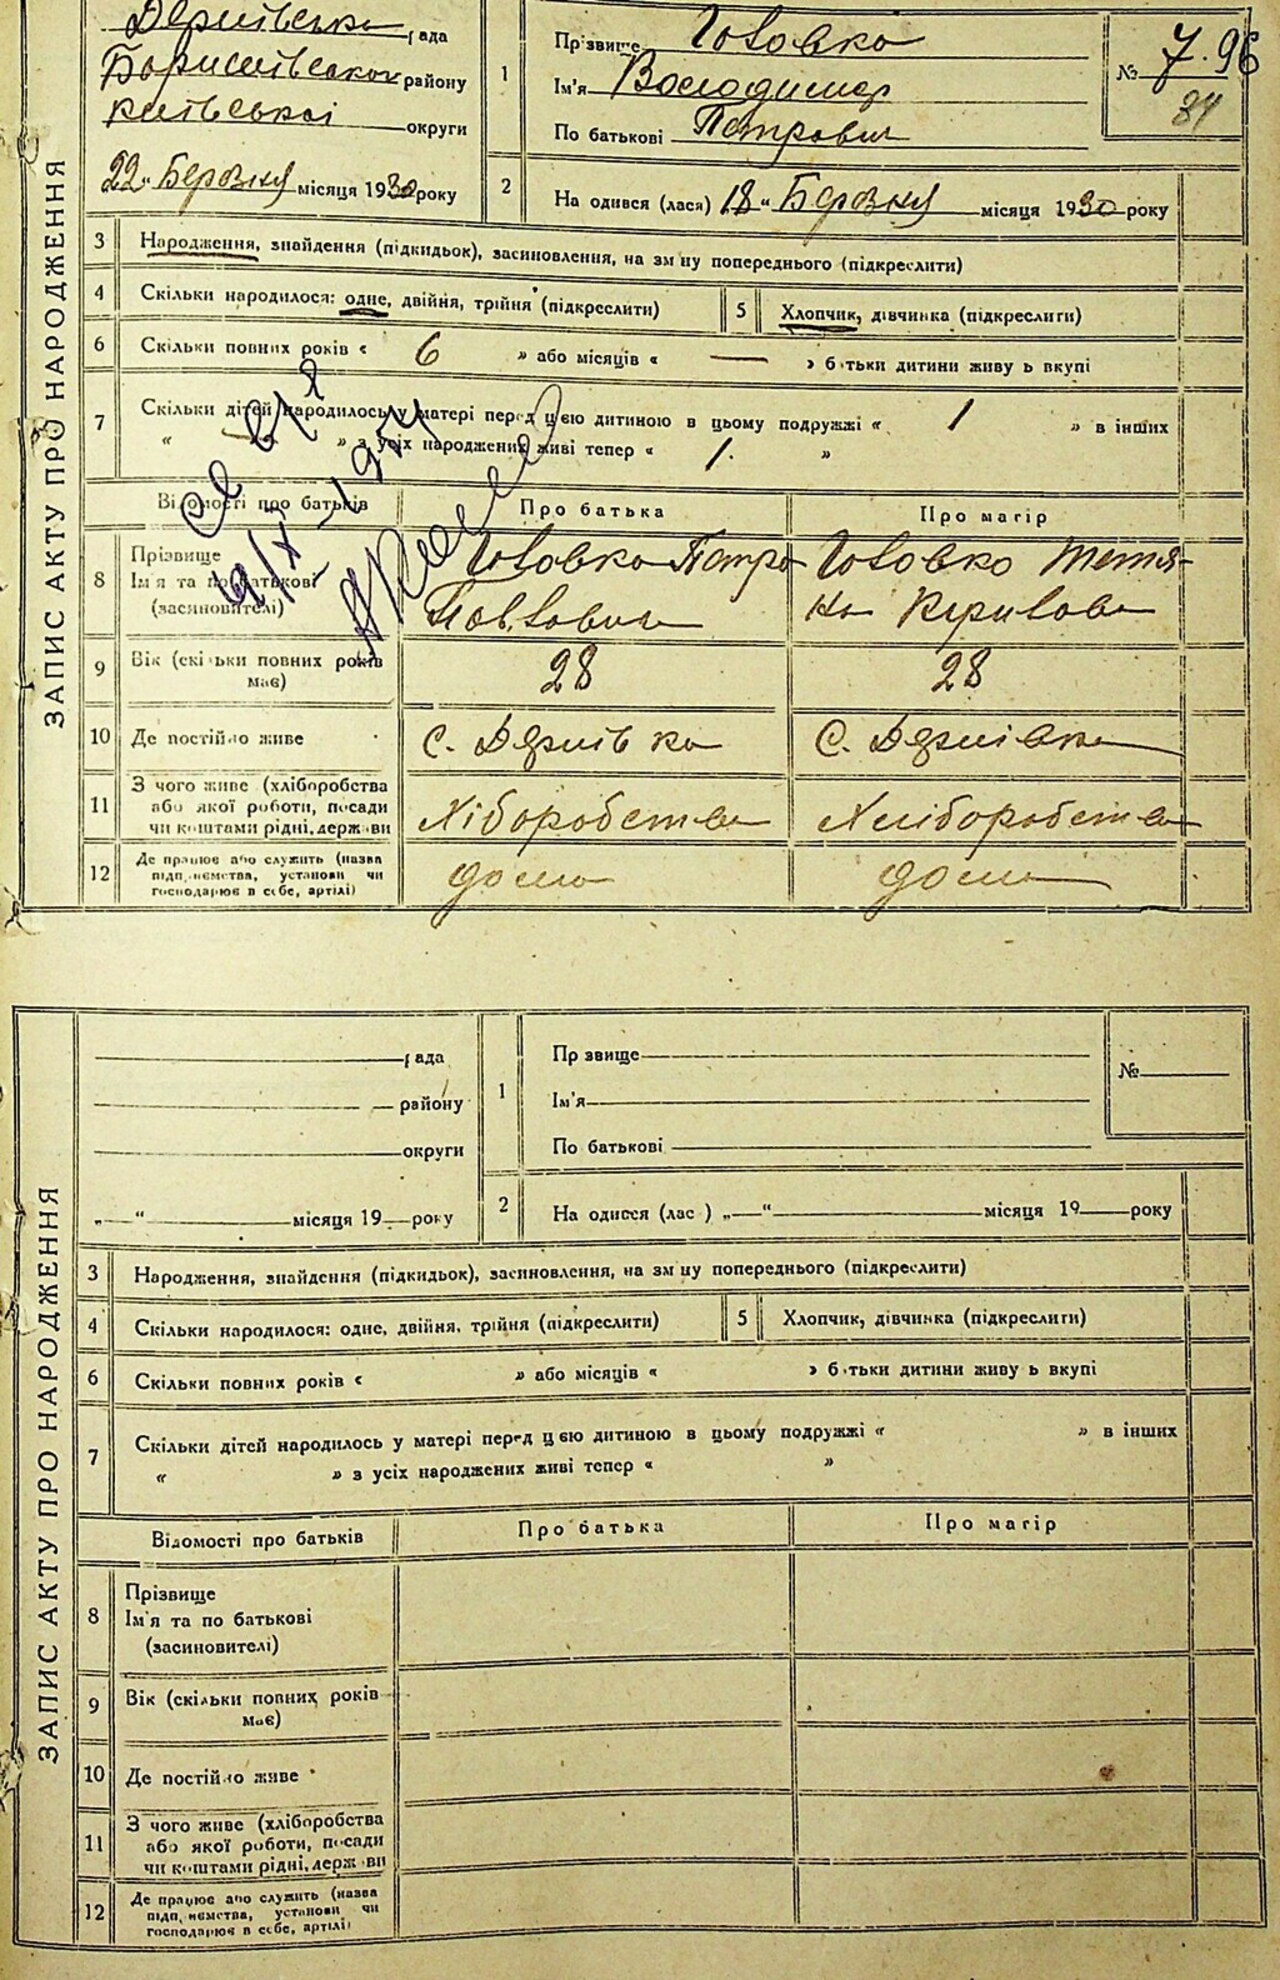 рада
Баришівського району
київської округи
22 " Березня місяця 1930 року
ЗАПИС АКТУ ПРО НАРОДЖЕННЯ
1
Прізвище Головко
Ім'я Володимир
По батькові Петрович
№ 7. 96
34
2
На одився (лася) 18 " Березня місяця 1930 року
3 Народження, знайдення (підкидьок), засиновлення, на зм ну попереднього (підкреслити)
4 Скільки народилося: одне, двійня, трійня (підкреслити)
5 Хлопчик, дівчинка (підкреслити)
6 Скільки повних років « 6 » або місяців « — » б тьки дитини живу ь вкупі
7 Скільки дітей народилось у матері перед цією дитиною в цьому подружжі « 1 » в інших
« — » з усіх народжених живі тепер « 1. »
Відомості про батьків
Про батька
Про матір
8 Прізвище
Ім'я та по батькові
(засиновителі)
Головко Петро
Павлович
Головко Тетя-
на
9 Вік (скільки повних років
має)
28
28
10 Де постійно живе
с.
с.
11 З чого живе (хліборобства
або якої роботи, посади
чи коштами рідні, держави
Хіборобства
Хліборобства
12 Де працює або служить (назва
підп,иємства, установи чи
господарює в себе, артілі)
дома
дома
рада
району
округи
„—“ місяця 19 року
ЗАПИС АКТУ ПРО НАРОДЖЕННЯ
1
Пр звище
Ім'я
По батькові
№
2
На одився (лас ) „—“ місяця 19 року
3 Народження, знайдення (підкидьок), засиновлення, на зм ну попереднього (підкреслити)
4 Скільки народилося: одне, двійня, трійня (підкреслити)
5 Хлопчик, дівчинка (підкреслити)
6 Скільки повних років « » або місяців « » б тьки дитини живу ь вкупі
7 Скільки дітей народилось у матері перед цією дитиною в цьому подружжі « » в інших
« » з усіх народжених живі тепер « »
Відомості про батьків
Про батька
Про матір
8 Прізвище
Ім'я та по батькові
(засиновителі)
9 Вік (скільки повних років
має)
10 Де постійно живе
11 З чого живе (хліборобства
або якої роботи, посади
чи коштами рідні, держави
12 Де працює або служить (назва
підп,иємства, установи чи
господарює в себе, артілі)